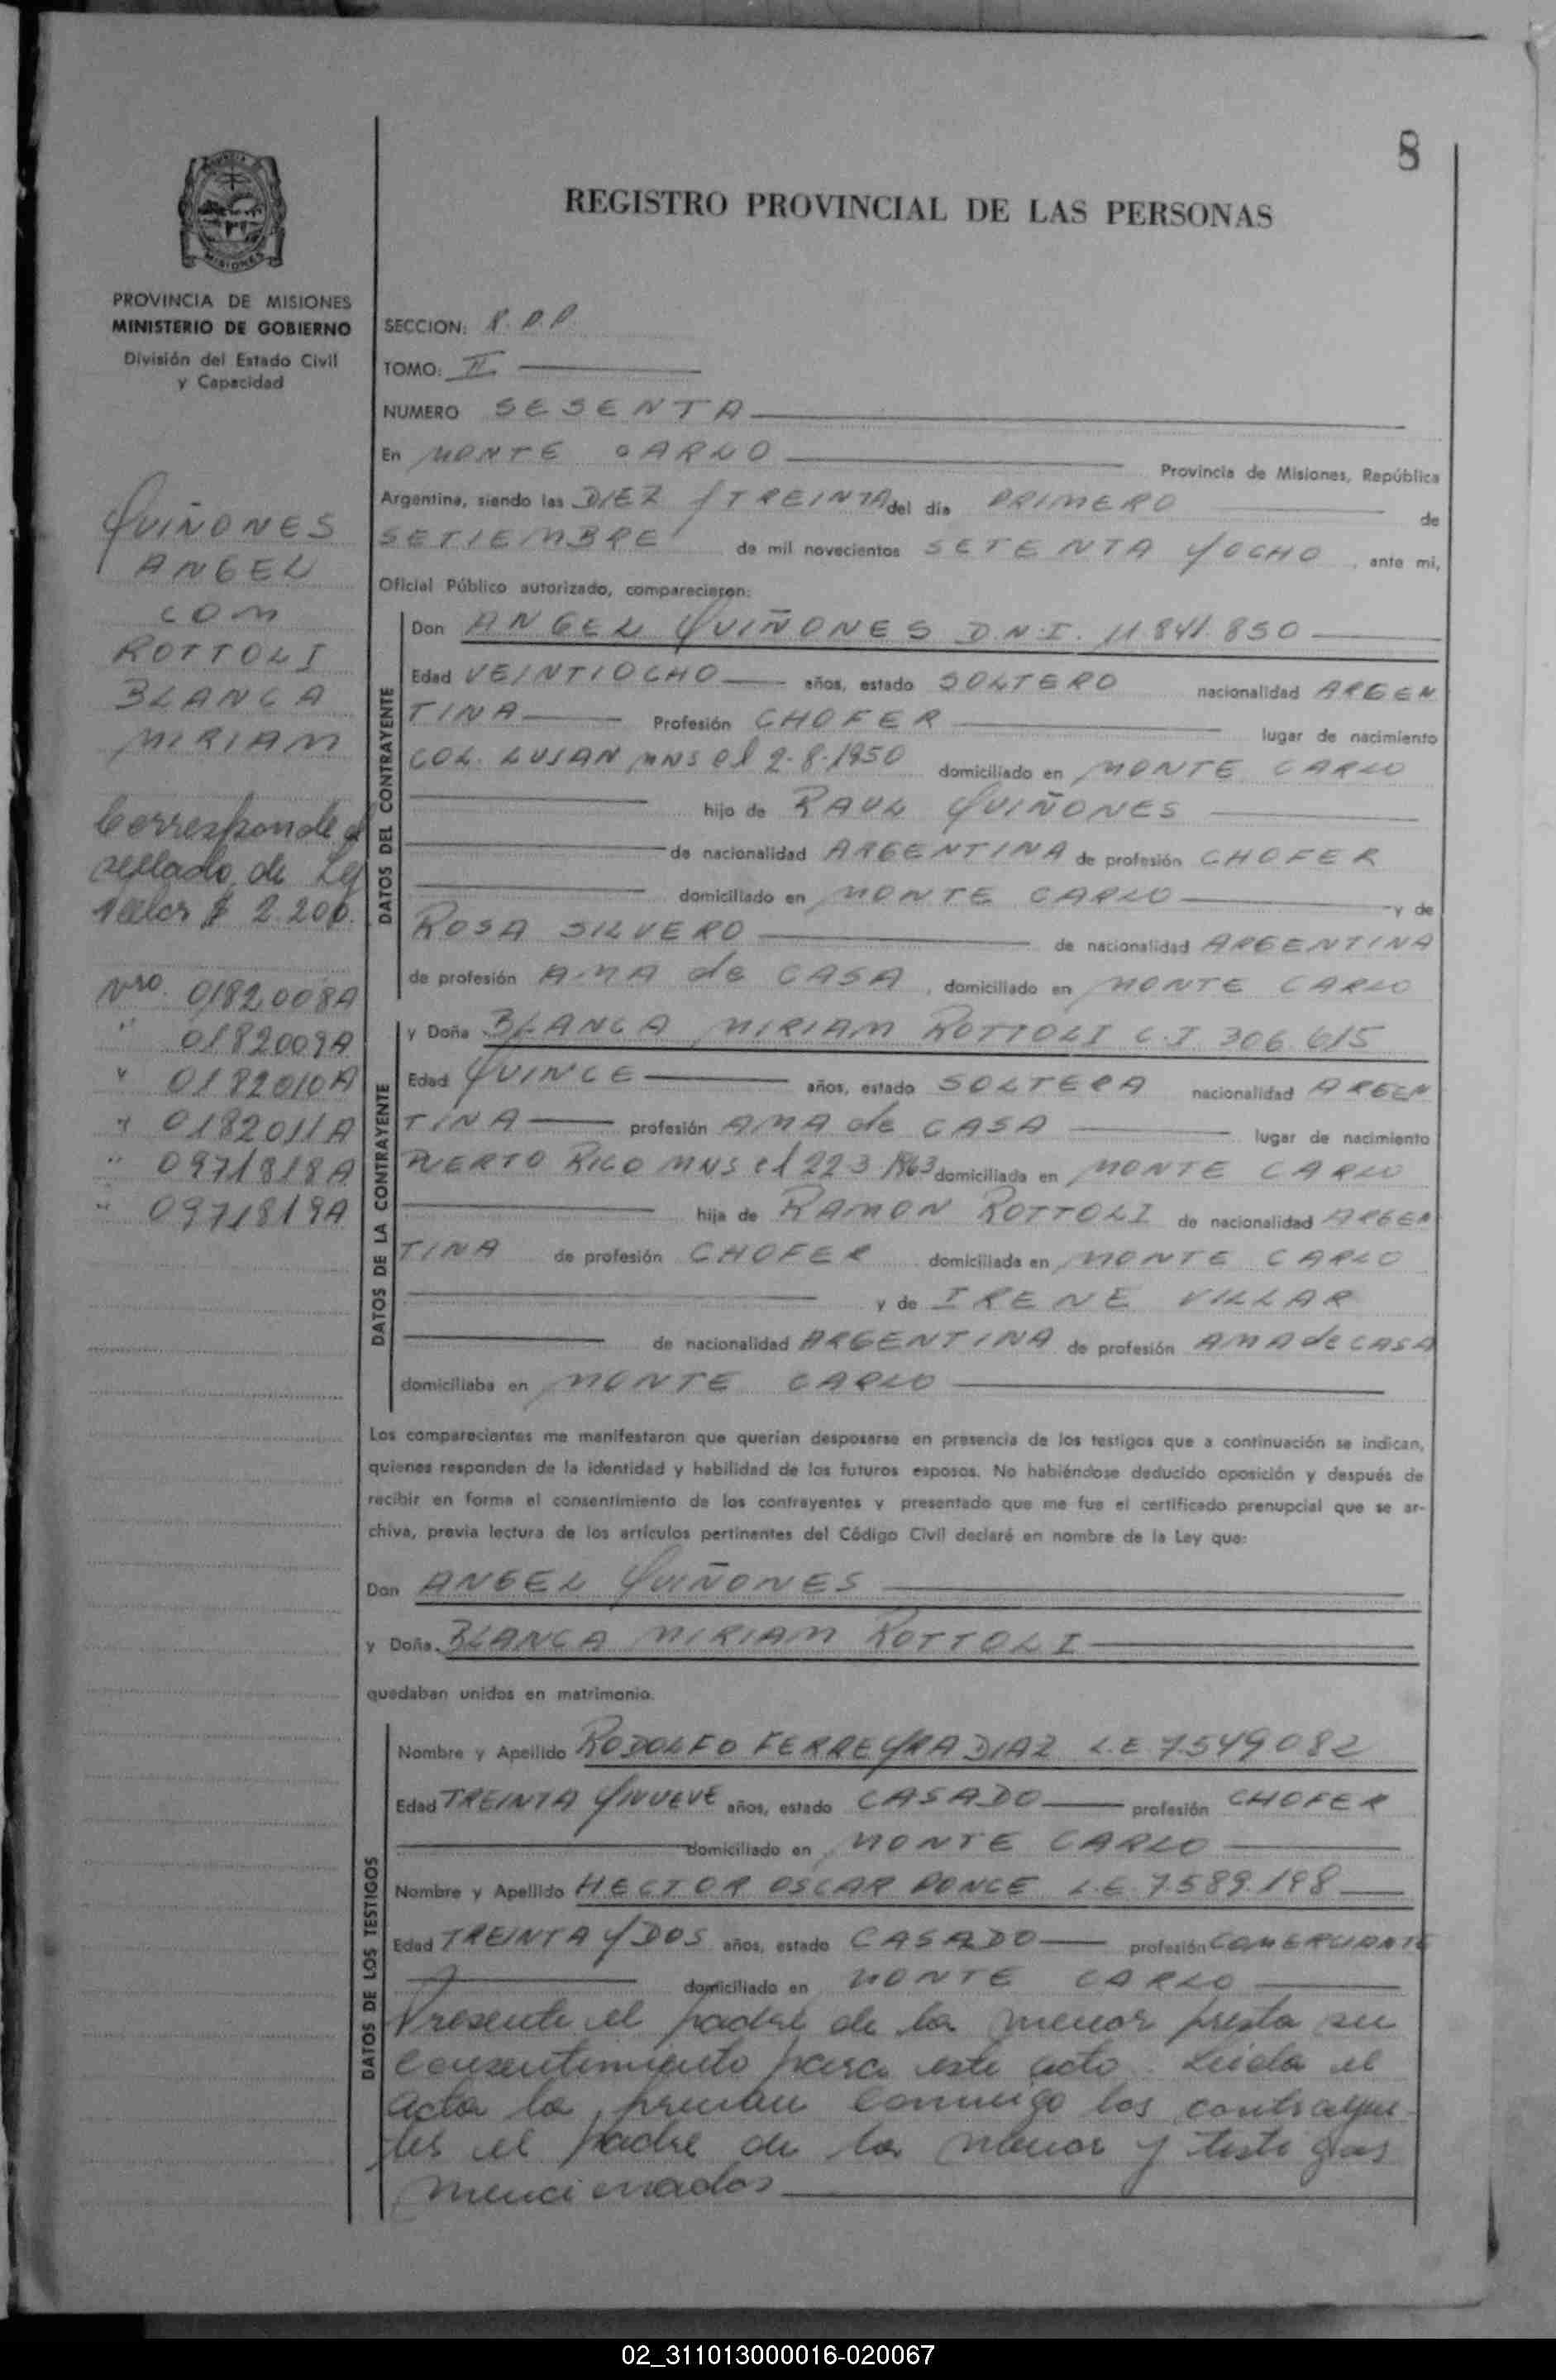 8
REGISTRO PROVINCIAL DE LAS PERSONAS
MISIONES
PROVINCIA DE MISIONES
MINISTERIO DE GOBIERNO
División del Estado Civil
y Capacidad
QUIÑONES
ANGEL
CON
ROTTOLI
BLANCA
MIRIAM
Corresponde al
sellado de Ley
valor $ 2.200.
Nro. 0182008A
" 0182009A
" 0182010A
" 0182011A
" 0971818A
" 0971819A
SECCION:
TOMO: II
NUMERO SESENTA
En MONTE CARLO Provincia de Misiones, República
Argentina, siendo las DIEZ y TREINTA del día PRIMERO de
SETIEMBRE de mil novecientos SETENTA Y OCHO, ante mi,
Oficial Público autorizado, comparecieron:
DATOS DEL CONTRAYENTE
Don ANGEL QUIÑONES D.N.I. 11.841.850
Edad VEINTIOCHO años, estado SOLTERO nacionalidad ARGEN
TINA Profesión CHOFER lugar de nacimiento
COL. LUJAN MNS el 2-8-1950 domiciliado en MONTE CARLO
hijo de RAUL QUIÑONES
de nacionalidad ARGENTINA de profesión CHOFER
domiciliado en MONTE CARLO y de
ROSA SILVERO de nacionalidad ARGENTINA
de profesión AMA de CASA, domiciliado en MONTE CARLO
DATOS DE LA CONTRAYENTE
y Doña BLANCA MIRIAM ROTTOLI C.I 306.615
Edad QUINCE años, estado SOLTERA nacionalidad ARGEN
TINA profesión AMA de CASA lugar de nacimiento
PUERTO RICO MNS el 22 3 1963 domiciliada en MONTE CARLO
hija de RAMON ROTTOLI de nacionalidad ARGEN
TINA de profesión CHOFER domiciliada en MONTE CARLO
y de IRENE VILLAR
de nacionalidad ARGENTINA de profesión AMA de CASA
domiciliaba en MONTE CARLO
Los comparecientes me manifestaron que querían desposarse en presencia de los testigos que a continuación se indican,
quienes responden de la identidad y habilidad de los futuros esposos. No habiéndose deducido oposición y después de
recibir en forma el consentimiento de los contrayentes y presentado que me fue el certificado prenupcial que se ar-
chiva, previa lectura de los artículos pertinentes del Código Civil declaré en nombre de la Ley que:
Don ANGEL QUIÑONES
y Doña BLANCA MIRIAM ROTTOLI
quedaban unidos en matrimonio.
DATOS DE LOS TESTIGOS
Nombre y Apellido RODOLFO FERREYRA DIAZ L.E 7.549.082
Edad TREINTA Y NUEVE años, estado CASADO profesión CHOFER
domiciliado en MONTE CARLO
Nombre y Apellido HECTOR OSCAR PONCE L.E. 7.589.198
Edad TREINTA Y DOS años, estado CASADO profesión COMERCIANTE
domiciliado en MONTE CARLO
Presente el padre de la menor presta su
consentimiento para este acto. Leida el
acta la firman conmigo los contrayen
tes el padre de la menor y testigos
mencionados
02_311013000016-020067